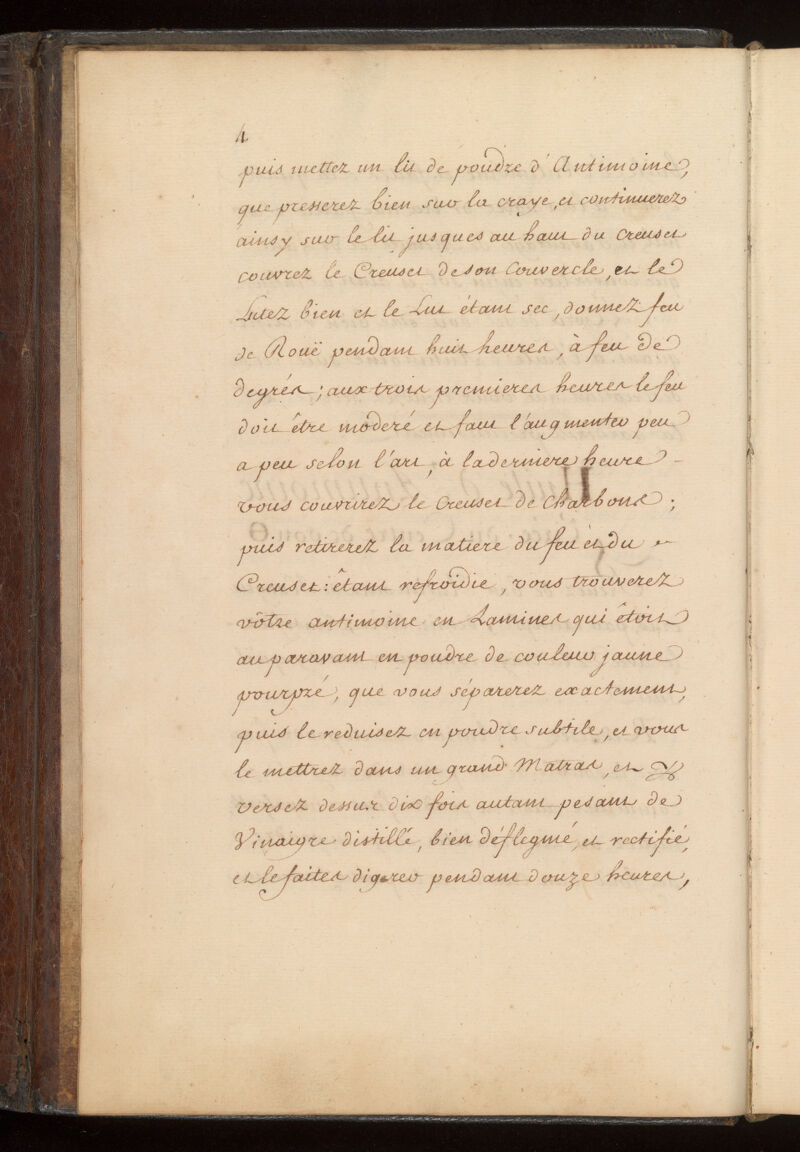 4
puis mettez un lit de poudre d'Antimoine,
que presserez bien sur la craye, et continuerez
ainsy sur le lit jusques au haut du creuset
couvrez le Creuset de son Couvercle, et le
Lutez bien et le Lut étant sec, donnez feu
de Rouë pendant huit heures, à feu de
degrés; aux trois premieres heures le feu
doit être modéré et faut l'augmenter peu
a peu selon l'art, à la derniere heure -
vous couvrirez le creuset de Charbons;
puis retirerez la matiere du feu et du
Creuset: êtant refroidie, vous trouverez
vôtre antimoine en Lamines qui êtoit
auparavant en poudre de couleur jaune
pourpré, que vous séparerez exactement,
puis le reduisez en poudre subtile, et vous
le mettrez dans un grand Matras, et
versez dessus dix fois autant pesant de
Vinaigre distillé, bien déflegmé, et rectifié,
et le faites digerer pendant douze heures,